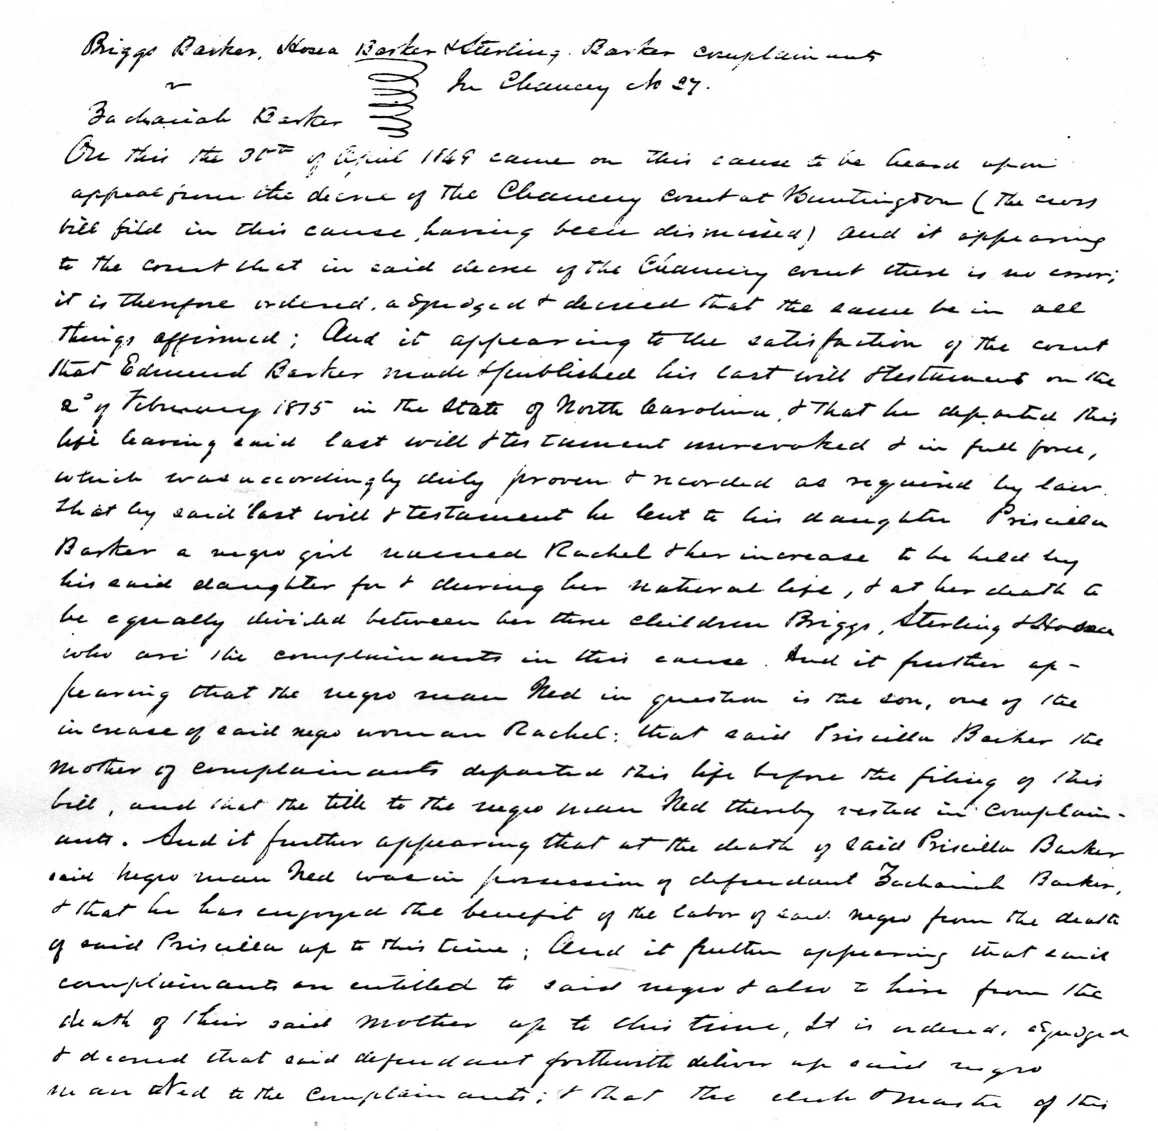 Briggs Barker, Hosea Barker & Sterling Barker complainants
v In Chancey No 27.
Zachariah Barker
On this the 30th of April 1849 came on this cause to be heard upon
appeal from the decree of the Chancery court at Huntingdon (the cross
bill fild in this cause, having been dismissed) And it appearing
to the court that in said decree of the Chancery court there is no error;
it is therefore ordered, adjudged & decreed that the same be in all
things affirmed; And it appearing to the satisfaction of the court
that Edmund Barker made & published his last will & testament on the
2d of February 1815 in the State of North Carolina, & that he departed this
life leaving said last will & testament unrevoked & in full force,
which was accordingly duly proven & recorded as required by law.
that by said last will & testament he lent to his daughter Priscilla
Barker a negro girl named Rachel & her increase to be held by
his said daughter for & during her natural life, & at her death to
be equally divided between her three children Briggs, Sterling & Hosea
who are the complainants in this cause. And it further ap-
pearing that the negro man Ned in question is the son, one of the
increase of said negro woman Rachel; that said Priscilla Barker the
mother of complainants departed this life before the filing of this
bill, and that the title to the negro man Ned thereby vested in complain-
ants. And it further appearing that at the death of said Priscilla Barker
said negro man Ned was in possession of defendant Zachariah Barker,
& that he has enjoyed the benefit of the labor of said negro from the death
of said Priscilla up to this time; And it further appearing that said
complainants are entitled to said negro & also to hire from the
death of their said mother up to this time, It is ordered, adjudged
& decreed that said defendant forthwith deliver up said negro
man Ned to the complainants; & that the clerk & master of this